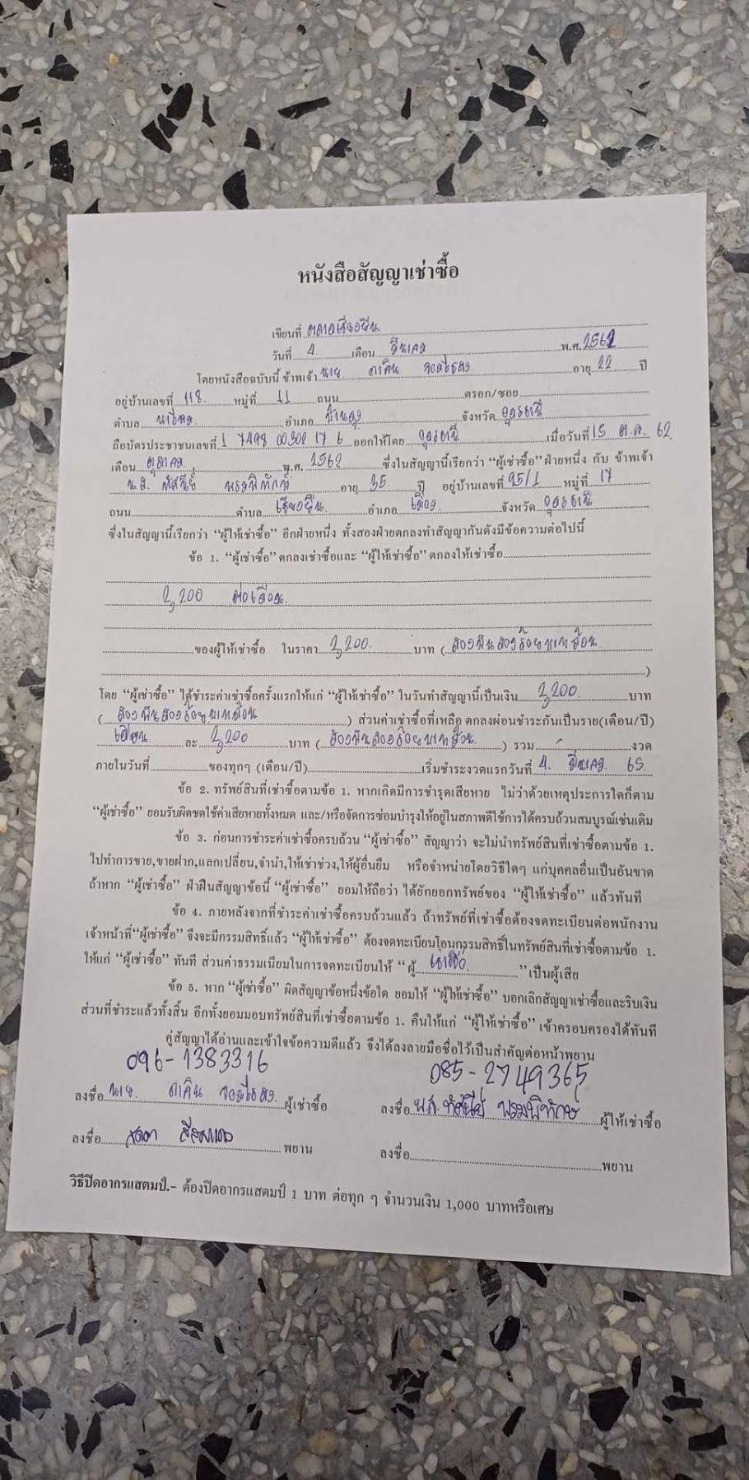 หนังสือสัญญาเช่าซื้อ
เขียนที่
วันที่ 4 เดือน มีนาคม พ.ศ. 2562
โดยหนังสือฉบับนี้ ข้าพเจ้า นาย ภาคิน อายุ 22 ปี
อยู่บ้านเลขที่ 118 หมู่ที่ 11 ถนน ตรอก/ซอย
ตำบล อำเภอ จังหวัด อุดรธานี
ถือบัตรประชาชนเลขที่ ออกให้โดย อุดรธานี เมื่อวันที่ 15 ต.ค. 62
เดือน ตุลาคม พ.ศ. 2562 ซึ่งในสัญญานี้เรียกว่า “ผู้เช่าซื้อ” ฝ่ายหนึ่ง กับ ข้าพเจ้า
น.ส. อายุ 35 ปี อยู่บ้านเลขที่ 95/1 หมู่ที่ 17
ถนน ตำบล เชียงยืน อำเภอ เมือง จังหวัด อุดรธานี
ซึ่งในสัญญานี้เรียกว่า “ผู้ให้เช่าซื้อ” อีกฝ่ายหนึ่ง ทั้งสองฝ่ายตกลงทำสัญญากันดังมีข้อความต่อไปนี้
ข้อ 1. “ผู้เช่าซื้อ” ตกลงเช่าซื้อและ “ผู้ให้เช่าซื้อ” ตกลงให้เช่าซื้อ
2,200 ต่อเดือน
ของผู้ให้เช่าซื้อ ในราคา 2,200 บาท ( สองพันสองร้อยบาทถ้วน
)
โดย “ผู้เช่าซื้อ” ได้ชำระค่าเช่าซื้อครั้งแรกให้แก่ “ผู้ให้เช่าซื้อ” ในวันทำสัญญานี้เป็นเงิน 2,200 บาท
( สองพันสองร้อยบาทถ้วน ) ส่วนค่าเช่าซื้อที่เหลือ ตกลงผ่อนชำระกันเป็นราย(เดือน/ปี)
เดือน ละ 2,200 บาท ( สองพันสองร้อยบาทถ้วน ) รวม - งวด
ภายในวันที่ ของทุกๆ (เดือน/ปี) เริ่มชำระงวดแรกวันที่ 4 มีนาคม 65
ข้อ 2. ทรัพย์สินที่เช่าซื้อตามข้อ 1. หากเกิดมีการชำรุดเสียหาย ไม่ว่าด้วยเหตุประการใดก็ตาม
“ผู้เช่าซื้อ” ยอมรับผิดชดใช้ค่าเสียหายทั้งหมด และ/หรือจัดการซ่อมบำรุงให้อยู่ในสภาพดีใช้การได้ครบถ้วนสมบูรณ์เช่นเดิม
ข้อ 3. ก่อนการชำระค่าเช่าซื้อครบถ้วน “ผู้เช่าซื้อ” สัญญาว่า จะไม่นำทรัพย์สินที่เช่าซื้อตามข้อ 1.
ไปทำการขาย,ขายฝาก,แลกเปลี่ยน,จำนำ,ให้เช่าช่วง,ให้ผู้อื่นยืม หรือจำหน่ายโดยวิธีใดๆ แก่บุคคลอื่นเป็นอันขาด
ถ้าหาก “ผู้เช่าซื้อ” ฝ่าฝืนสัญญาข้อนี้ “ผู้เช่าซื้อ” ยอมให้ถือว่า ได้ยักยอกทรัพย์ของ “ผู้ให้เช่าซื้อ” แล้วทันที
ข้อ 4. ภายหลังจากที่ชำระค่าเช่าซื้อครบถ้วนแล้ว ถ้าทรัพย์ที่เช่าซื้อต้องจดทะเบียนต่อพนักงาน
เจ้าหน้าที่“ผู้เช่าซื้อ” จึงจะมีกรรมสิทธิ์แล้ว “ผู้ให้เช่าซื้อ” ต้องจดทะเบียนโอนกรรมสิทธิ์ในทรัพย์สินที่เช่าซื้อตามข้อ 1.
ให้แก่ “ผู้เช่าซื้อ” ทันที ส่วนค่าธรรมเนียมในการจดทะเบียนให้ “ผู้ เช่าซื้อ ” เป็นผู้เสีย
ข้อ 5. หาก “ผู้เช่าซื้อ” ผิดสัญญาข้อหนึ่งข้อใด ยอมให้ “ผู้ให้เช่าซื้อ” บอกเลิกสัญญาเช่าซื้อและริบเงิน
ส่วนที่ชำระแล้วทั้งสิ้น อีกทั้งยอมมอบทรัพย์สินที่เช่าซื้อตามข้อ 1. คืนให้แก่ “ผู้ให้เช่าซื้อ” เข้าครอบครองได้ทันที
คู่สัญญาได้อ่านและเข้าใจข้อความดีแล้ว จึงได้ลงลายมือชื่อไว้เป็นสำคัญต่อหน้าพยาน
096-1383316 085-2749365
ลงชื่อ นาย ภาคิน ผู้เช่าซื้อ ลงชื่อ น.ส. ทัศนีย์ พรมพิทักษ์ ผู้ให้เช่าซื้อ
ลงชื่อ พยาน ลงชื่อ พยาน
วิธีปิดอากรแสตมป์.- ต้องปิดอากรแสตมป์ 1 บาท ต่อทุก ๆ จำนวนเงิน 1,000 บาทหรือเศษ